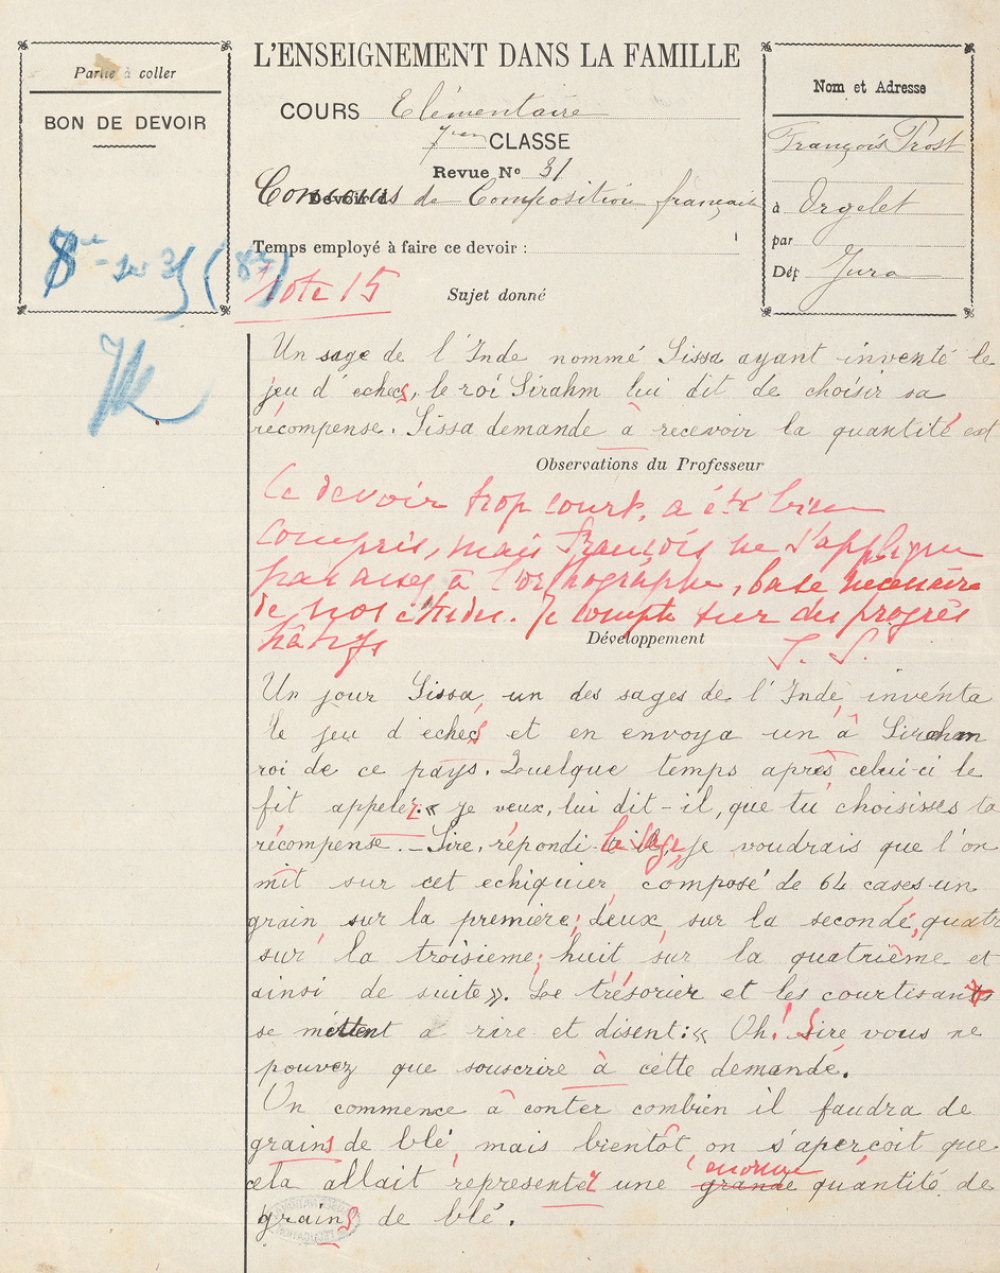 Partie à coller
BON DE DEVOIR
8e - no 31 (8e)
L'ENSEIGNEMENT DANS LA FAMILLE
COURS Elémentaire
7em CLASSE
Revue No 31
Concours de Composition française
Temps employé à faire ce devoir :
Note 15
Sujet donné
Nom et Adresse
François Prost
à Orgelet
par
Dép Jura
Un sage de l'Inde nommé Sissa ayant inventé le
jeu d'echecs, le roi Sirahm lui dit de choisir sa
récompense. Sissa demande à recevoir la quantité est
Observations du Professeur
Ce devoir trop court, a été bien
compris, mais François ne s'applique
pas assez à l'orthographe, base nécessaire
de nos études. Je compte sur des progrès
Développement
J. S.
Un jour Sissa, un des sages de l'Inde, inventa
le jeu d'echecs et en envoya un à Sirahm
roi de ce pays. Quelque temps après celui-ci le
fit appeler: « je veux, lui dit-il, que tu choisisses ta
récompense. - Sire, répondi le sage, je voudrais que l'on
mît sur cet echiquier, composé de 64 cases un
grain sur la première; deux, sur la seconde, quatr
sur la troisieme; huit sur la quatrième et
ainsi de suite ». Le trésorier et les courtisans
se mettent a rire et disent: « Oh! Sire, vous ne
pouvez que souscrire à cette demande.
On commence à conter combien il faudra de
grains de blé, mais bientôt, on s'aperçoit que
cela allait représenter une grande énorme quantité de
grains de blé.